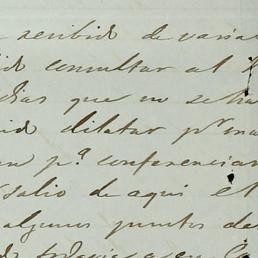 recibido de varias
consultar al
dias que no se ha
dilatar pr. mas
pa. conferencias
salio de aqui el
algunos puntos de